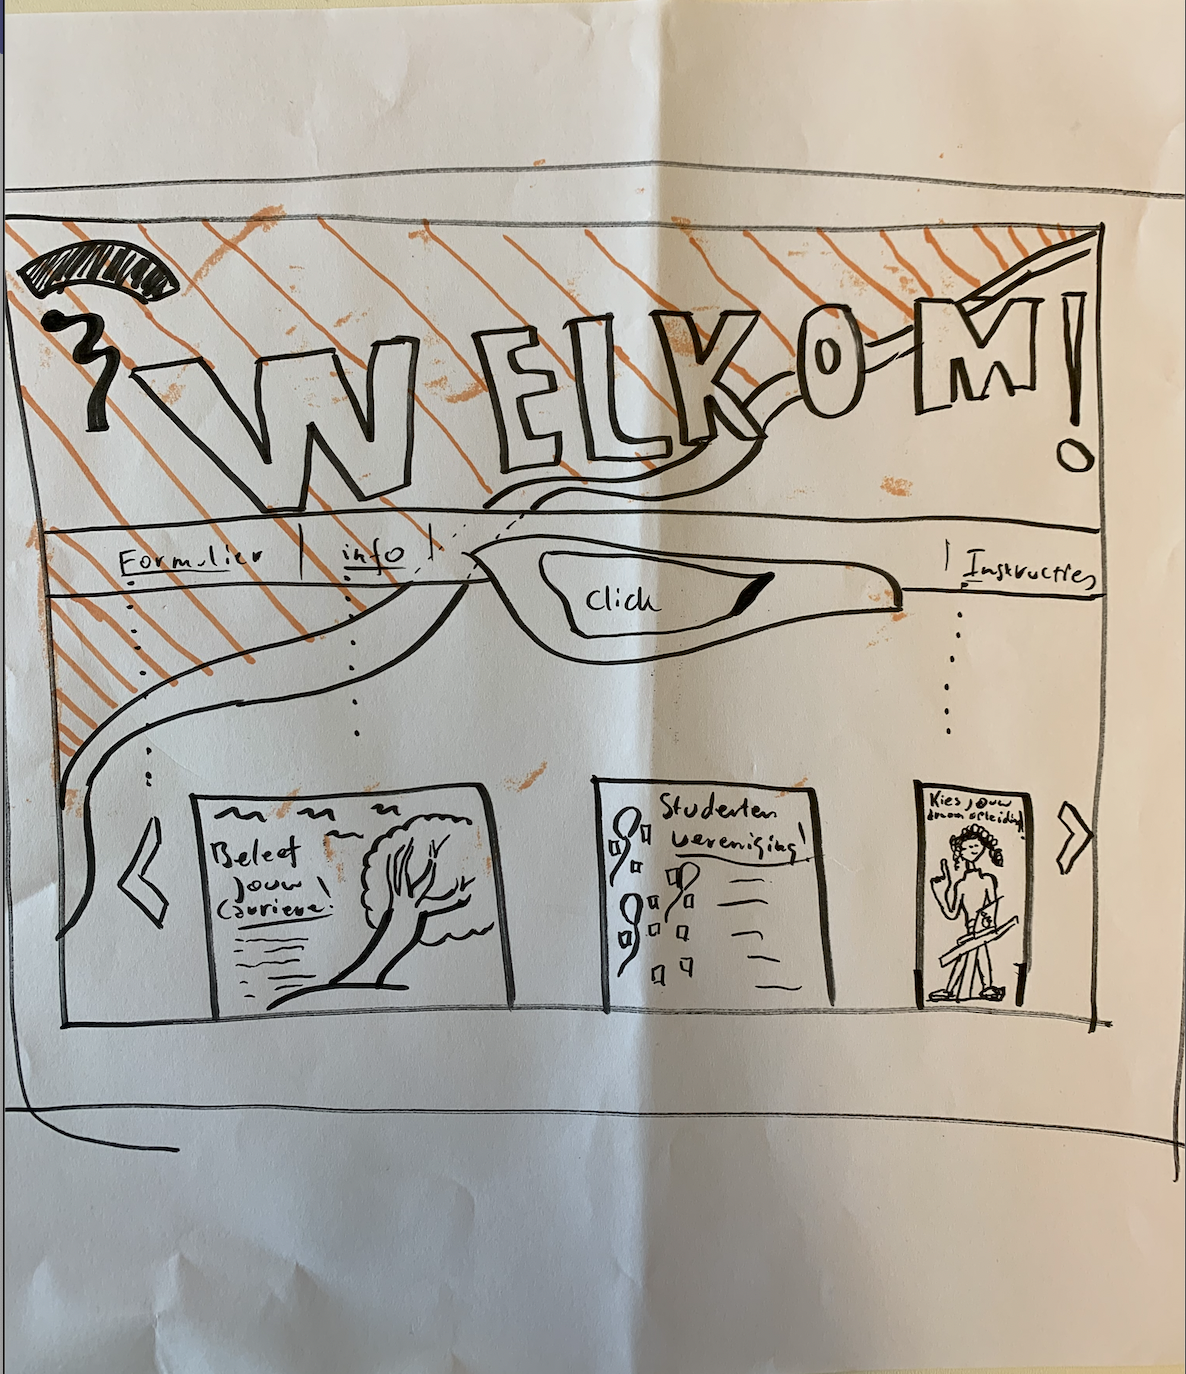 WELKOM!
Formulier
info
click
Instructies
Beleef
jouw
Carriere!
Studenten
vereniging!
Kies jouw
droom opleiding!